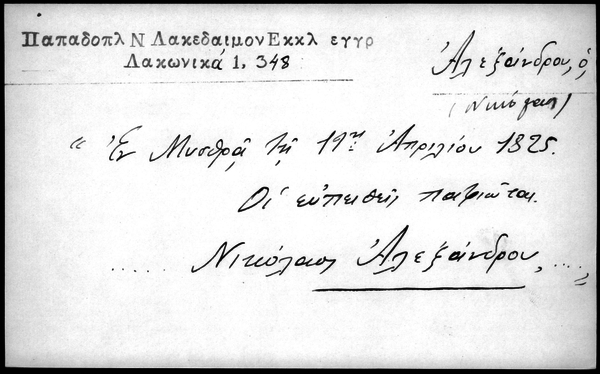 Παπαδοπλ Ν ΛακεδαιμονΕκκλ εγγρ
Λακωνικά 1, 348
Ἀλεξάνδρου, ὁ
(Νικόλαος)
" Ἐν Μυσθρᾷ τῇ 19ῃ Ἀπριλίου 1825.
Οἱ εὐπειθεῖς πατριῶται.
..... Νικόλαος Ἀλεξάνδρου, ....."